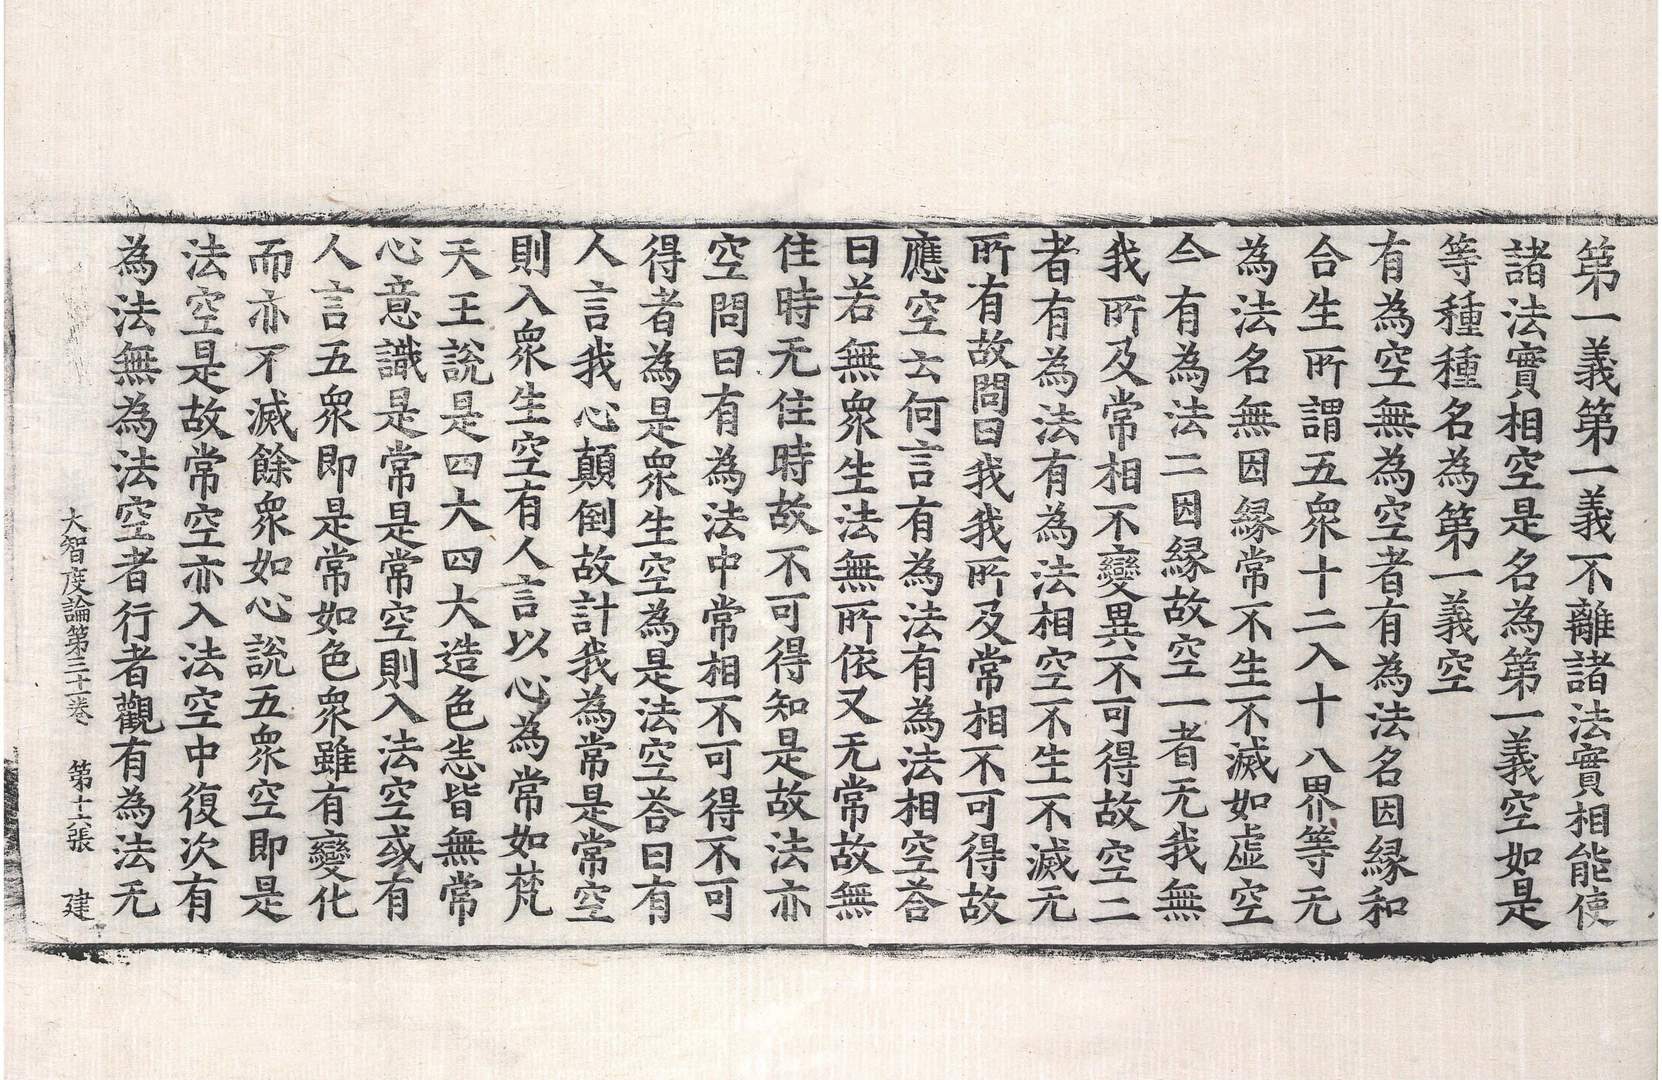 第一義第一義不離諸法實相能使
諸法實相空是名為第一義空如是
等種種名為第一義空
有為空無為空者有為法名因緣和
合生所謂五衆十二入十八界等无
為法名無因緣常不生不滅如虛空
今有為法二因緣故空一者无我無
我所及常相不變異不可得故空二
者有為法有為法相空不生不滅无
所有故問曰我我所及常相不可得故
應空云何言有為法有為法相空荅
曰若無衆生法無所依又无常故無
住時无住時故不可得知是故法亦
空問曰有為法中常相不可得不可
得者為是衆生空為是法空荅曰有
人言我心顛倒故計我為常是常空
則入衆生空有人言以心為常如梵
天王說是四大四大造色悉皆無常
心意識是常是常空則入法空或有
人言五衆即是常如色衆雖有變化
而亦不滅餘衆如心說五衆空即是
法空是故常空亦入法空中復次有
為法無為法空者行者觀有為法无
大智度論第三十一卷　第十六張　建